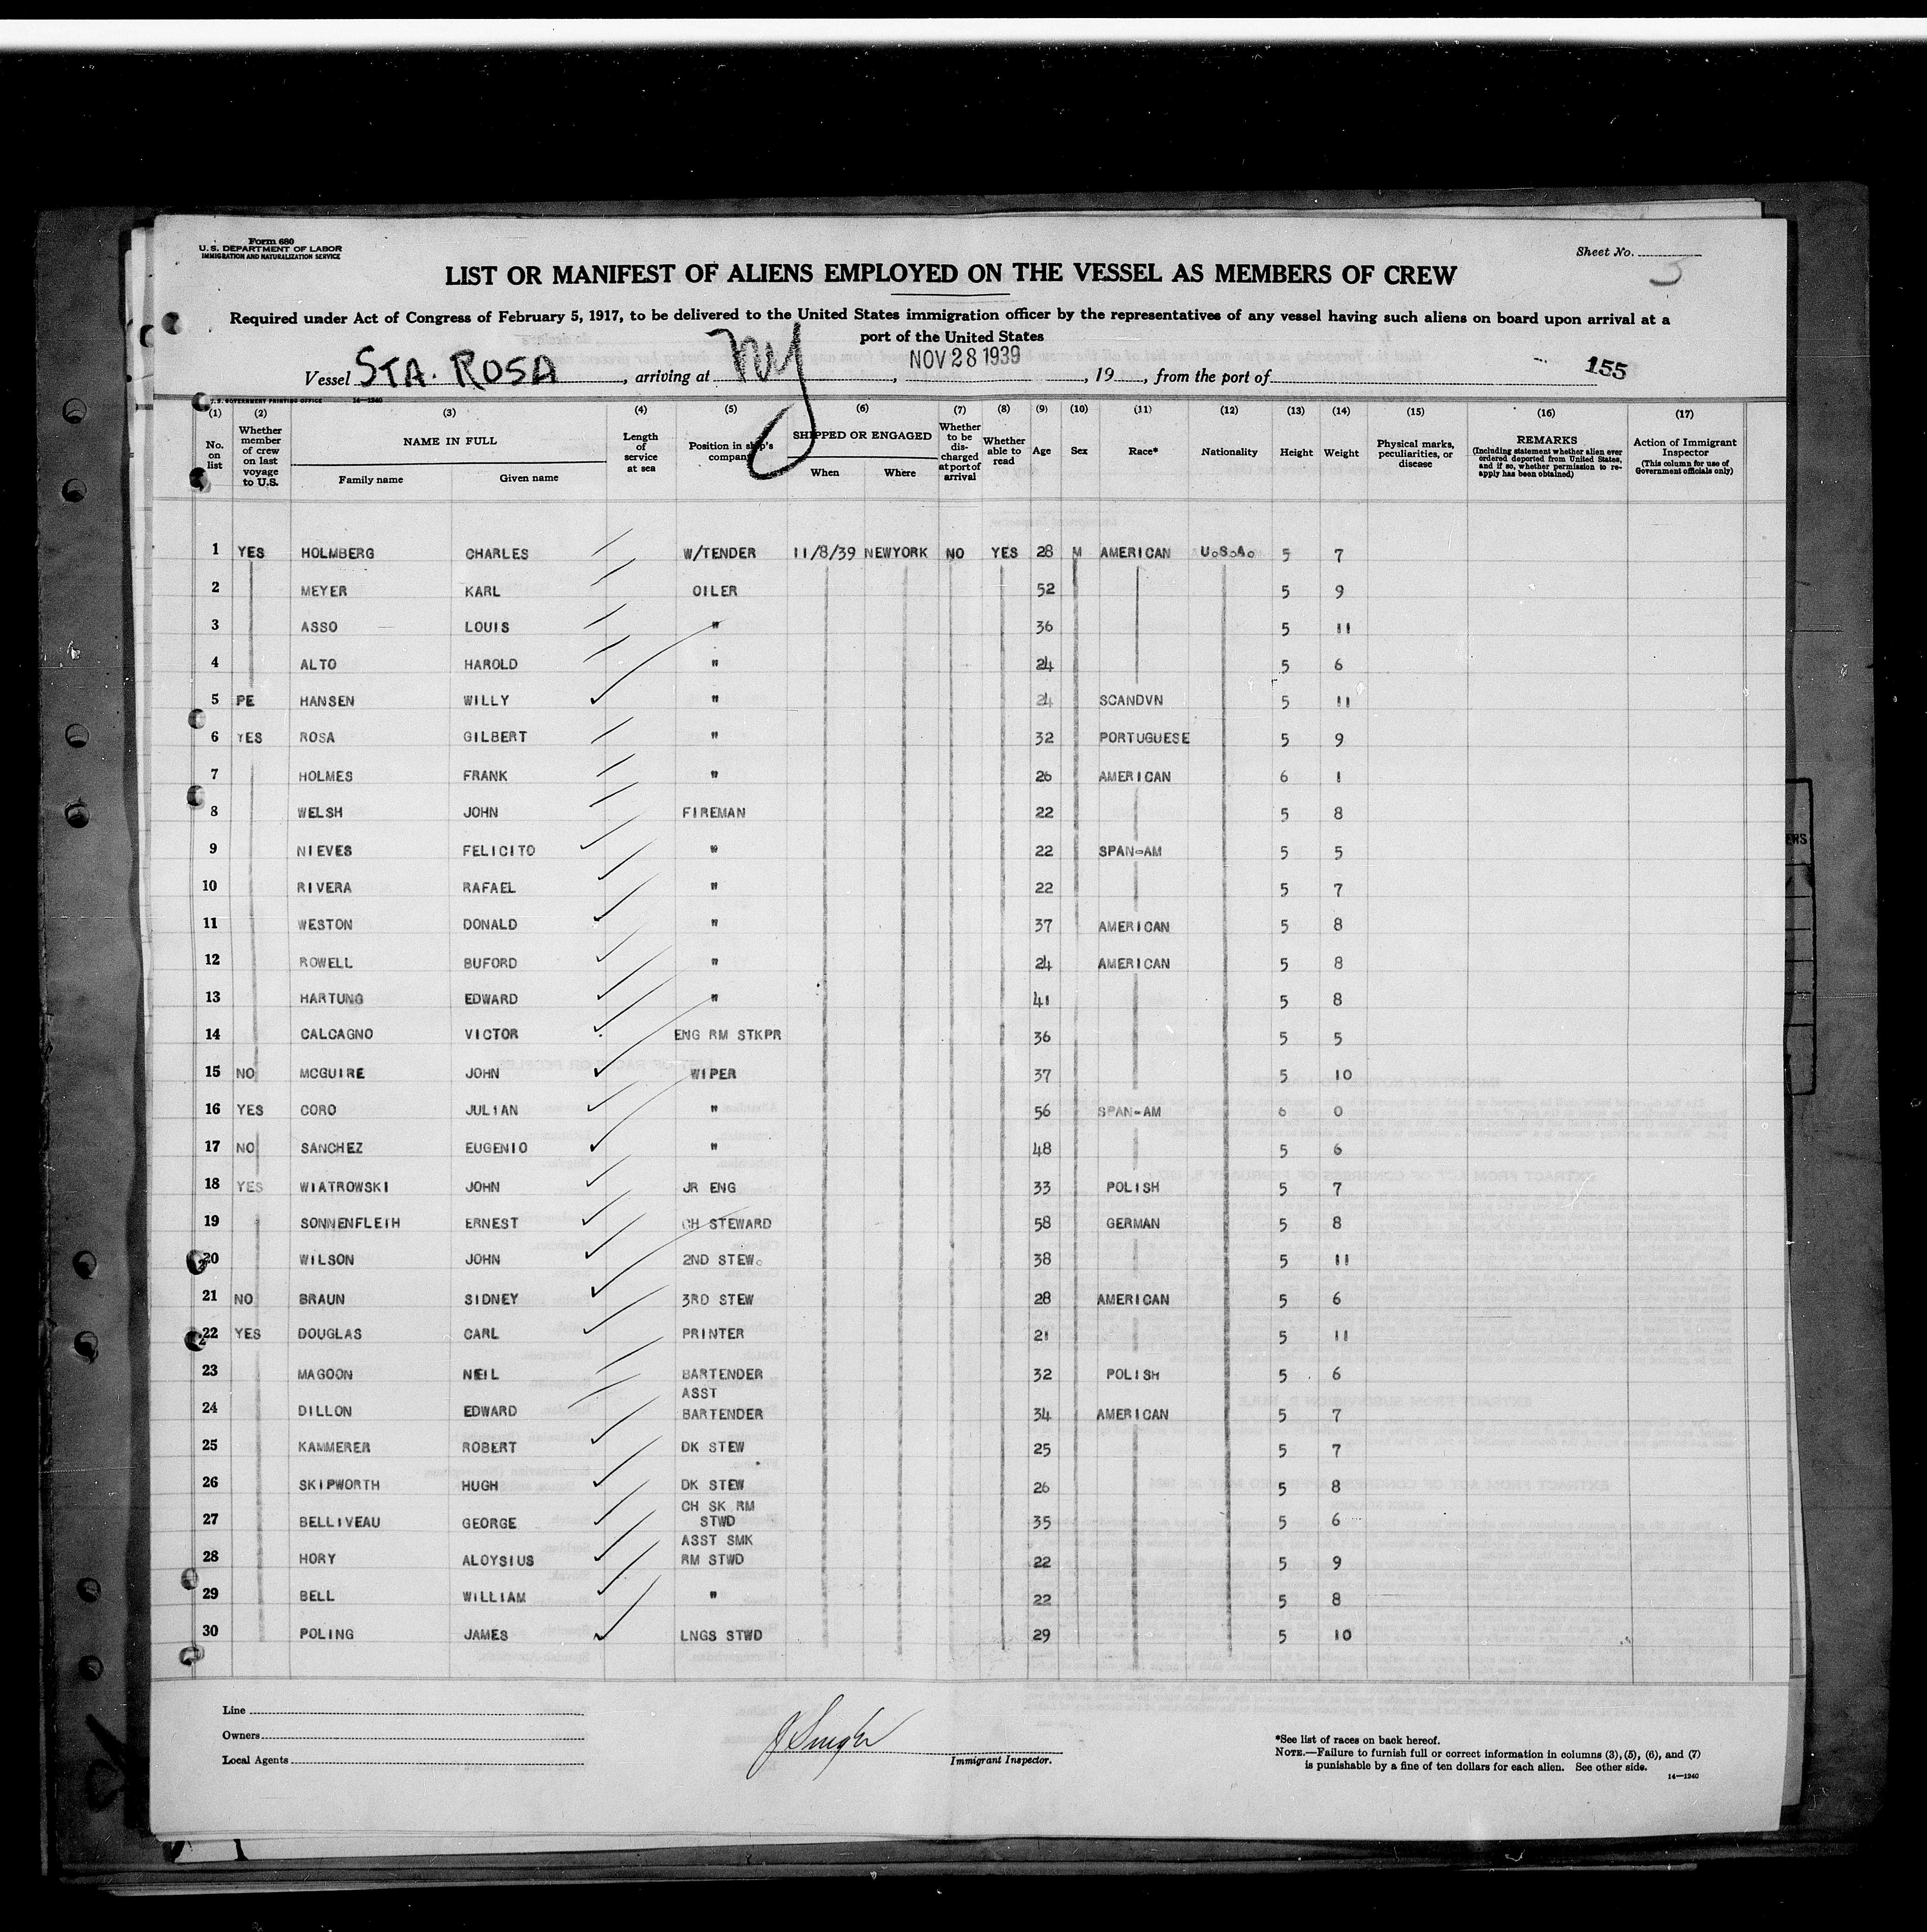 Form 680
U. S. DEPARTMENT OF LABOR
IMMIGRATION AND NATURALIZATION SERVICE
Sheet No. 3
LIST OR MANIFEST OF ALIENS EMPLOYED ON THE VESSEL AS MEMBERS OF CREW
Required under Act of Congress of February 5, 1917, to be delivered to the United States immigration officer by the representatives of any vessel having such aliens on board upon arrival at a
port of the United States
Vessel STA. ROSA, arriving at NY, NOV 28 1939, 19, from the port of 155
U.S. GOVERNMENT PRINTING OFFICE 14—1240
(1) (2) (3) (4) (5) (6) (7) (8) (9) (10) (11) (12) (13) (14) (15) (16) (17)
No. on list
Whether member of crew on last voyage to U.S.
NAME IN FULL
Family name Given name
Length of service at sea
Position in ship's company
SHIPPED OR ENGAGED
When Where
Whether to be discharged at port of arrival
Whether able to read
Age Sex Race* Nationality Height Weight
Physical marks, peculiarities, or disease
REMARKS
(Including statement whether alien ever ordered deported from United States, and if so, whether permission to re-apply has been obtained)
Action of Immigrant Inspector
(This column for use of Government officials only)
1 YES HOLMBERG CHARLES W/TENDER 11/8/39 NEWYORK NO YES 28 M AMERICAN U.S.A. 5 7
2 MEYER KARL OILER 52 5 9
3 ASSO LOUIS " 36 5 11
4 ALTO HAROLD " 24 5 6
5 PE HANSEN WILLY " 24 SCANDVN 5 11
6 YES ROSA GILBERT " 32 PORTUGUESE 5 9
7 HOLMES FRANK " 26 AMERICAN 6 1
8 WELSH JOHN FIREMAN 22 5 8
9 NIEVES FELICITO " 22 SPAN-AM 5 5
10 RIVERA RAFAEL " 22 5 7
11 WESTON DONALD " 37 AMERICAN 5 8
12 ROWELL BUFORD " 24 AMERICAN 5 8
13 HARTUNG EDWARD " 41 5 8
14 CALCAGNO VICTOR ENG RM STKPR 36 5 5
15 NO MCGUIRE JOHN WIPER 37 5 10
16 YES CORO JULIAN " 56 SPAN-AM 6 0
17 NO SANCHEZ EUGENIO " 48 5 6
18 YES WIATROWSKI JOHN JR ENG 33 POLISH 5 7
19 SONNENFLEIH ERNEST CH STEWARD 58 GERMAN 5 8
20 WILSON JOHN 2ND STEW. 38 5 11
21 NO BRAUN SIDNEY 3RD STEW 28 AMERICAN 5 6
22 YES DOUGLAS CARL PRINTER 21 5 11
23 MAGOON NEIL BARTENDER 32 POLISH 5 6
24 DILLON EDWARD ASST BARTENDER 34 AMERICAN 5 7
25 KAMMERER ROBERT DK STEW 25 5 7
26 SKIPWORTH HUGH DK STEW 26 5 8
27 BELLIVEAU GEORGE CH SK RM STWD 35 5 6
28 HORY ALOYSIUS ASST SMK RM STWD 22 5 9
29 BELL WILLIAM " 22 5 8
30 POLING JAMES LNGS STWD 29 5 10
Line
Owners
Local Agents
Immigrant Inspector.
*See list of races on back hereof.
NOTE.—Failure to furnish full or correct information in columns (3), (5), (6), and (7)
is punishable by a fine of ten dollars for each alien. See other side.
14—1240